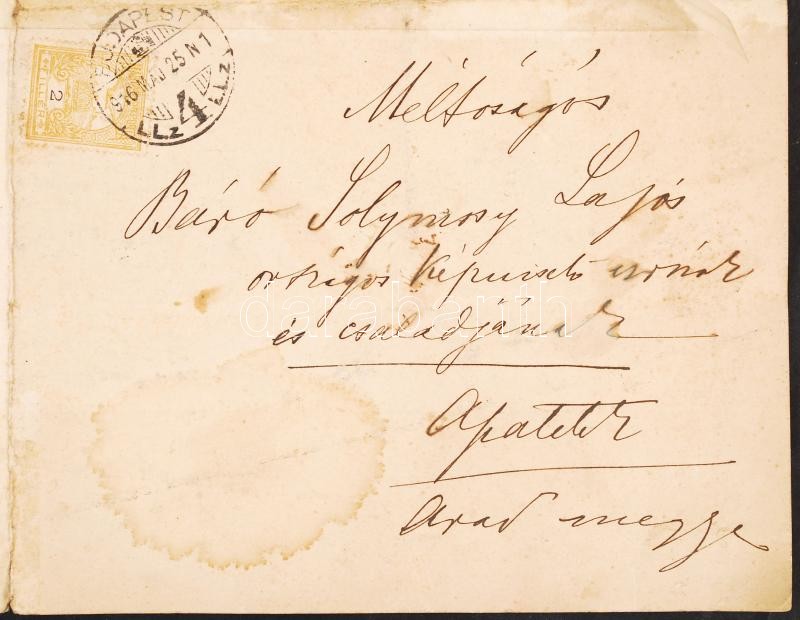 BUDAPEST
916 MÁJ 25 N1
4
I.L.Z I.L.Z
2
FILLÉR
Méltóságos
Báró Solymosy Lajos
országos képviselő urnak
és családjának
Apatelek
Arad megye
darabanth